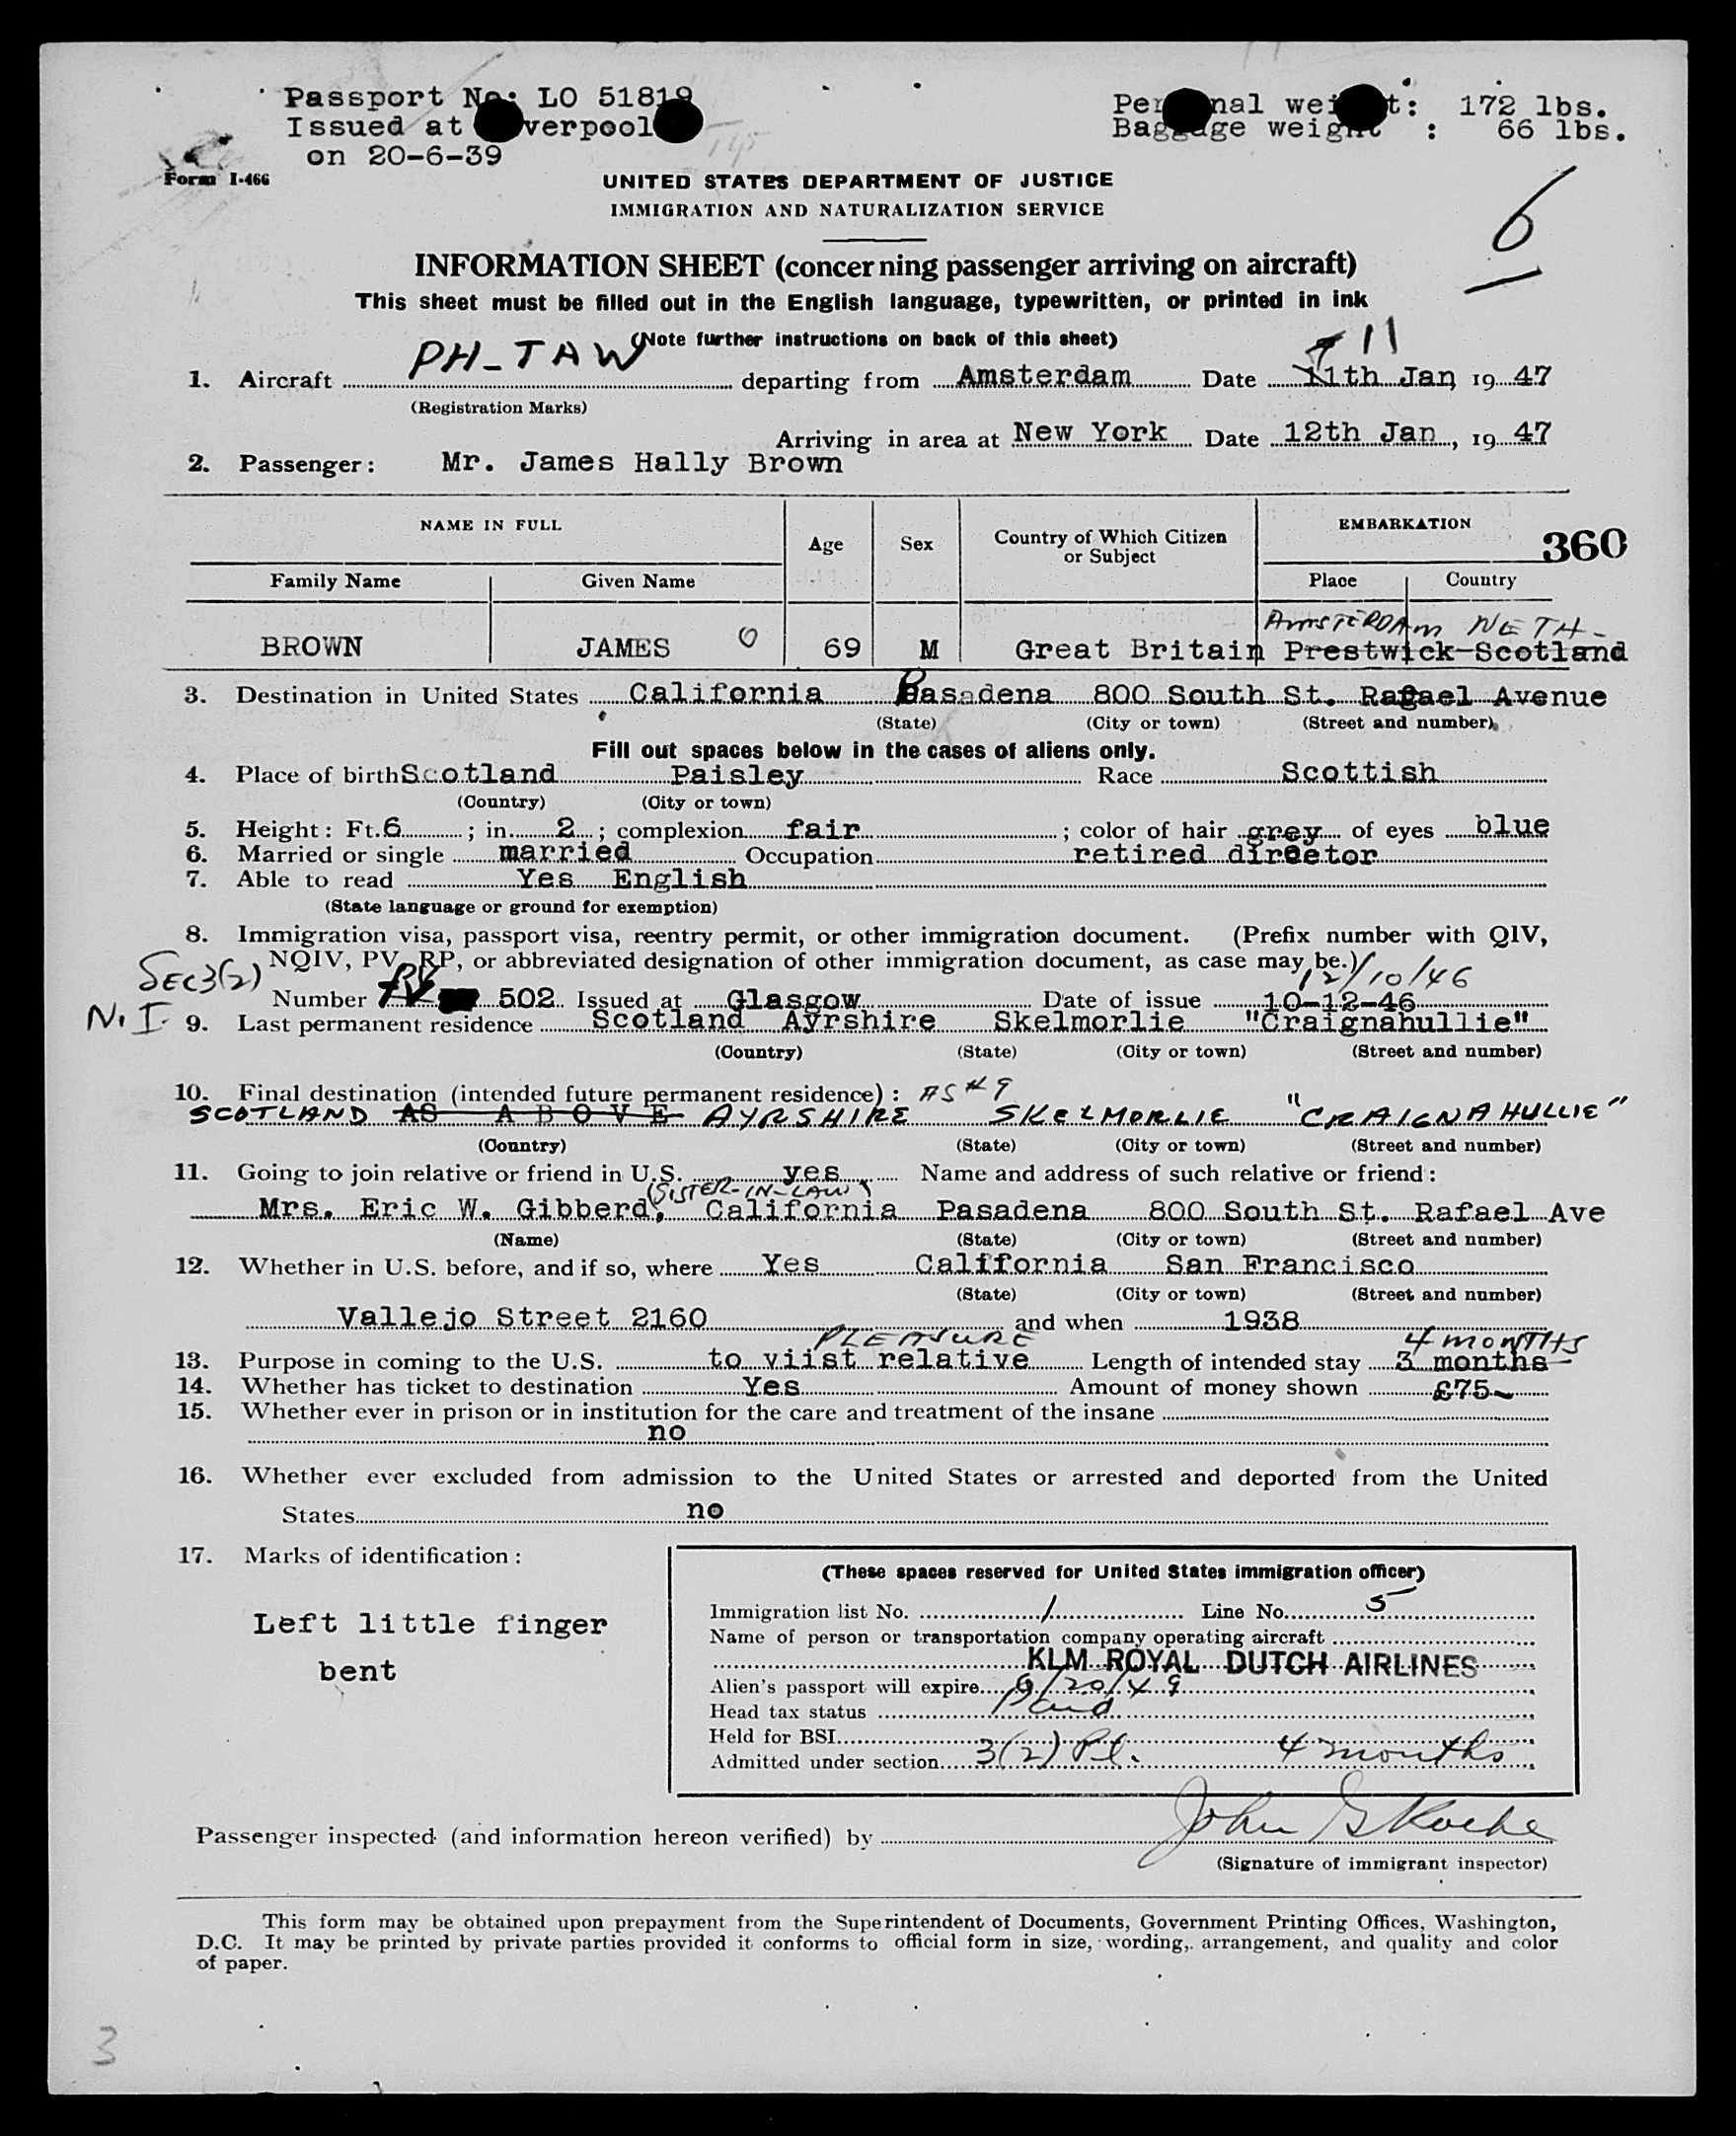 Passport No: LO 51819
Issued at Liverpool
on 20-6-39
Personal weight: 172 lbs.
Baggage weight : 66 lbs.
Form I-466
UNITED STATES DEPARTMENT OF JUSTICE
IMMIGRATION AND NATURALIZATION SERVICE
6
INFORMATION SHEET (concerning passenger arriving on aircraft)
This sheet must be filled out in the English language, typewritten, or printed in ink
(Note further instructions on back of this sheet)
11
1. Aircraft PH-TAW departing from Amsterdam Date 11th Jan, 19 47
(Registration Marks)
Arriving in area at New York Date 12th Jan, 19 47
2. Passenger: Mr. James Hally Brown
NAME IN FULL Age Sex Country of Which Citizen or Subject EMBARKATION 360
Family Name Given Name Place Country
AMSTERDAM NETH-
BROWN JAMES 0 69 M Great Britain Prestwick-Scotland
3. Destination in United States California Pasadena 800 South St. Rafael Avenue
(State) (City or town) (Street and number)
Fill out spaces below in the cases of aliens only.
4. Place of birth Scotland Paisley Race Scottish
(Country) (City or town)
5. Height: Ft. 6 ; in. 2 ; complexion fair ; color of hair grey of eyes blue
6. Married or single married Occupation retired director
7. Able to read Yes English
(State language or ground for exemption)
8. Immigration visa, passport visa, reentry permit, or other immigration document. (Prefix number with QIV,
SEC 3(2) NQIV, PV, RP, or abbreviated designation of other immigration document, as case may be.)
PV 12/10/46
Number 502 Issued at Glasgow Date of issue 10-12-46
N.I. 9. Last permanent residence Scotland Ayrshire Skelmorlie "Craignahullie"
(Country) (State) (City or town) (Street and number)
10. Final destination (intended future permanent residence): AS # 9
SCOTLAND AS ABOVE AYRSHIRE SKELMORLIE "CRAIGNAHULLIE"
(Country) (State) (City or town) (Street and number)
11. Going to join relative or friend in U.S. yes Name and address of such relative or friend:
(SISTER-IN-LAW)
Mrs. Eric W. Gibberd, California Pasadena 800 South St. Rafael Ave
(Name) (State) (City or town) (Street and number)
12. Whether in U.S. before, and if so, where Yes California San Francisco
(State) (City or town) (Street and number)
Vallejo Street 2160 and when 1938
PLEASURE 4 MONTHS
13. Purpose in coming to the U.S. to viist relative Length of intended stay 3 months
14. Whether has ticket to destination Yes Amount of money shown £75~
15. Whether ever in prison or in institution for the care and treatment of the insane
no
16. Whether ever excluded from admission to the United States or arrested and deported from the United
States no
17. Marks of identification:
Left little finger
bent
(These spaces reserved for United States immigration officer)
Immigration list No. 1 Line No. 5
Name of person or transportation company operating aircraft
KLM ROYAL DUTCH AIRLINES
Alien's passport will expire 6/20/49
Head tax status Paid
Held for BSI
Admitted under section 3(2) Pl. 4 months
Passenger inspected (and information hereon verified) by John G Roche
(Signature of immigrant inspector)
This form may be obtained upon prepayment from the Superintendent of Documents, Government Printing Offices, Washington,
D.C. It may be printed by private parties provided it conforms to official form in size, wording, arrangement, and quality and color
of paper.
3